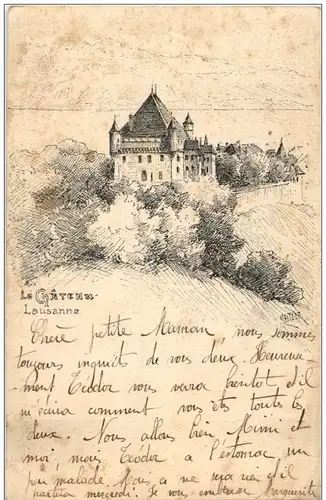 Le Château
Lausanne
Chère petite Maman, nous sommes
toujours inquiets de vous deux. Heureuse-
ment Teodor vous verra bientot et il
m'ecrira comment vous etes toutes les
deux. Nous allons bien Mimi et
moi, mais Teodor a l'estomac un
peu malade. On a ne va et s'il
partira mercredi. Je vous embrasse Marguerite